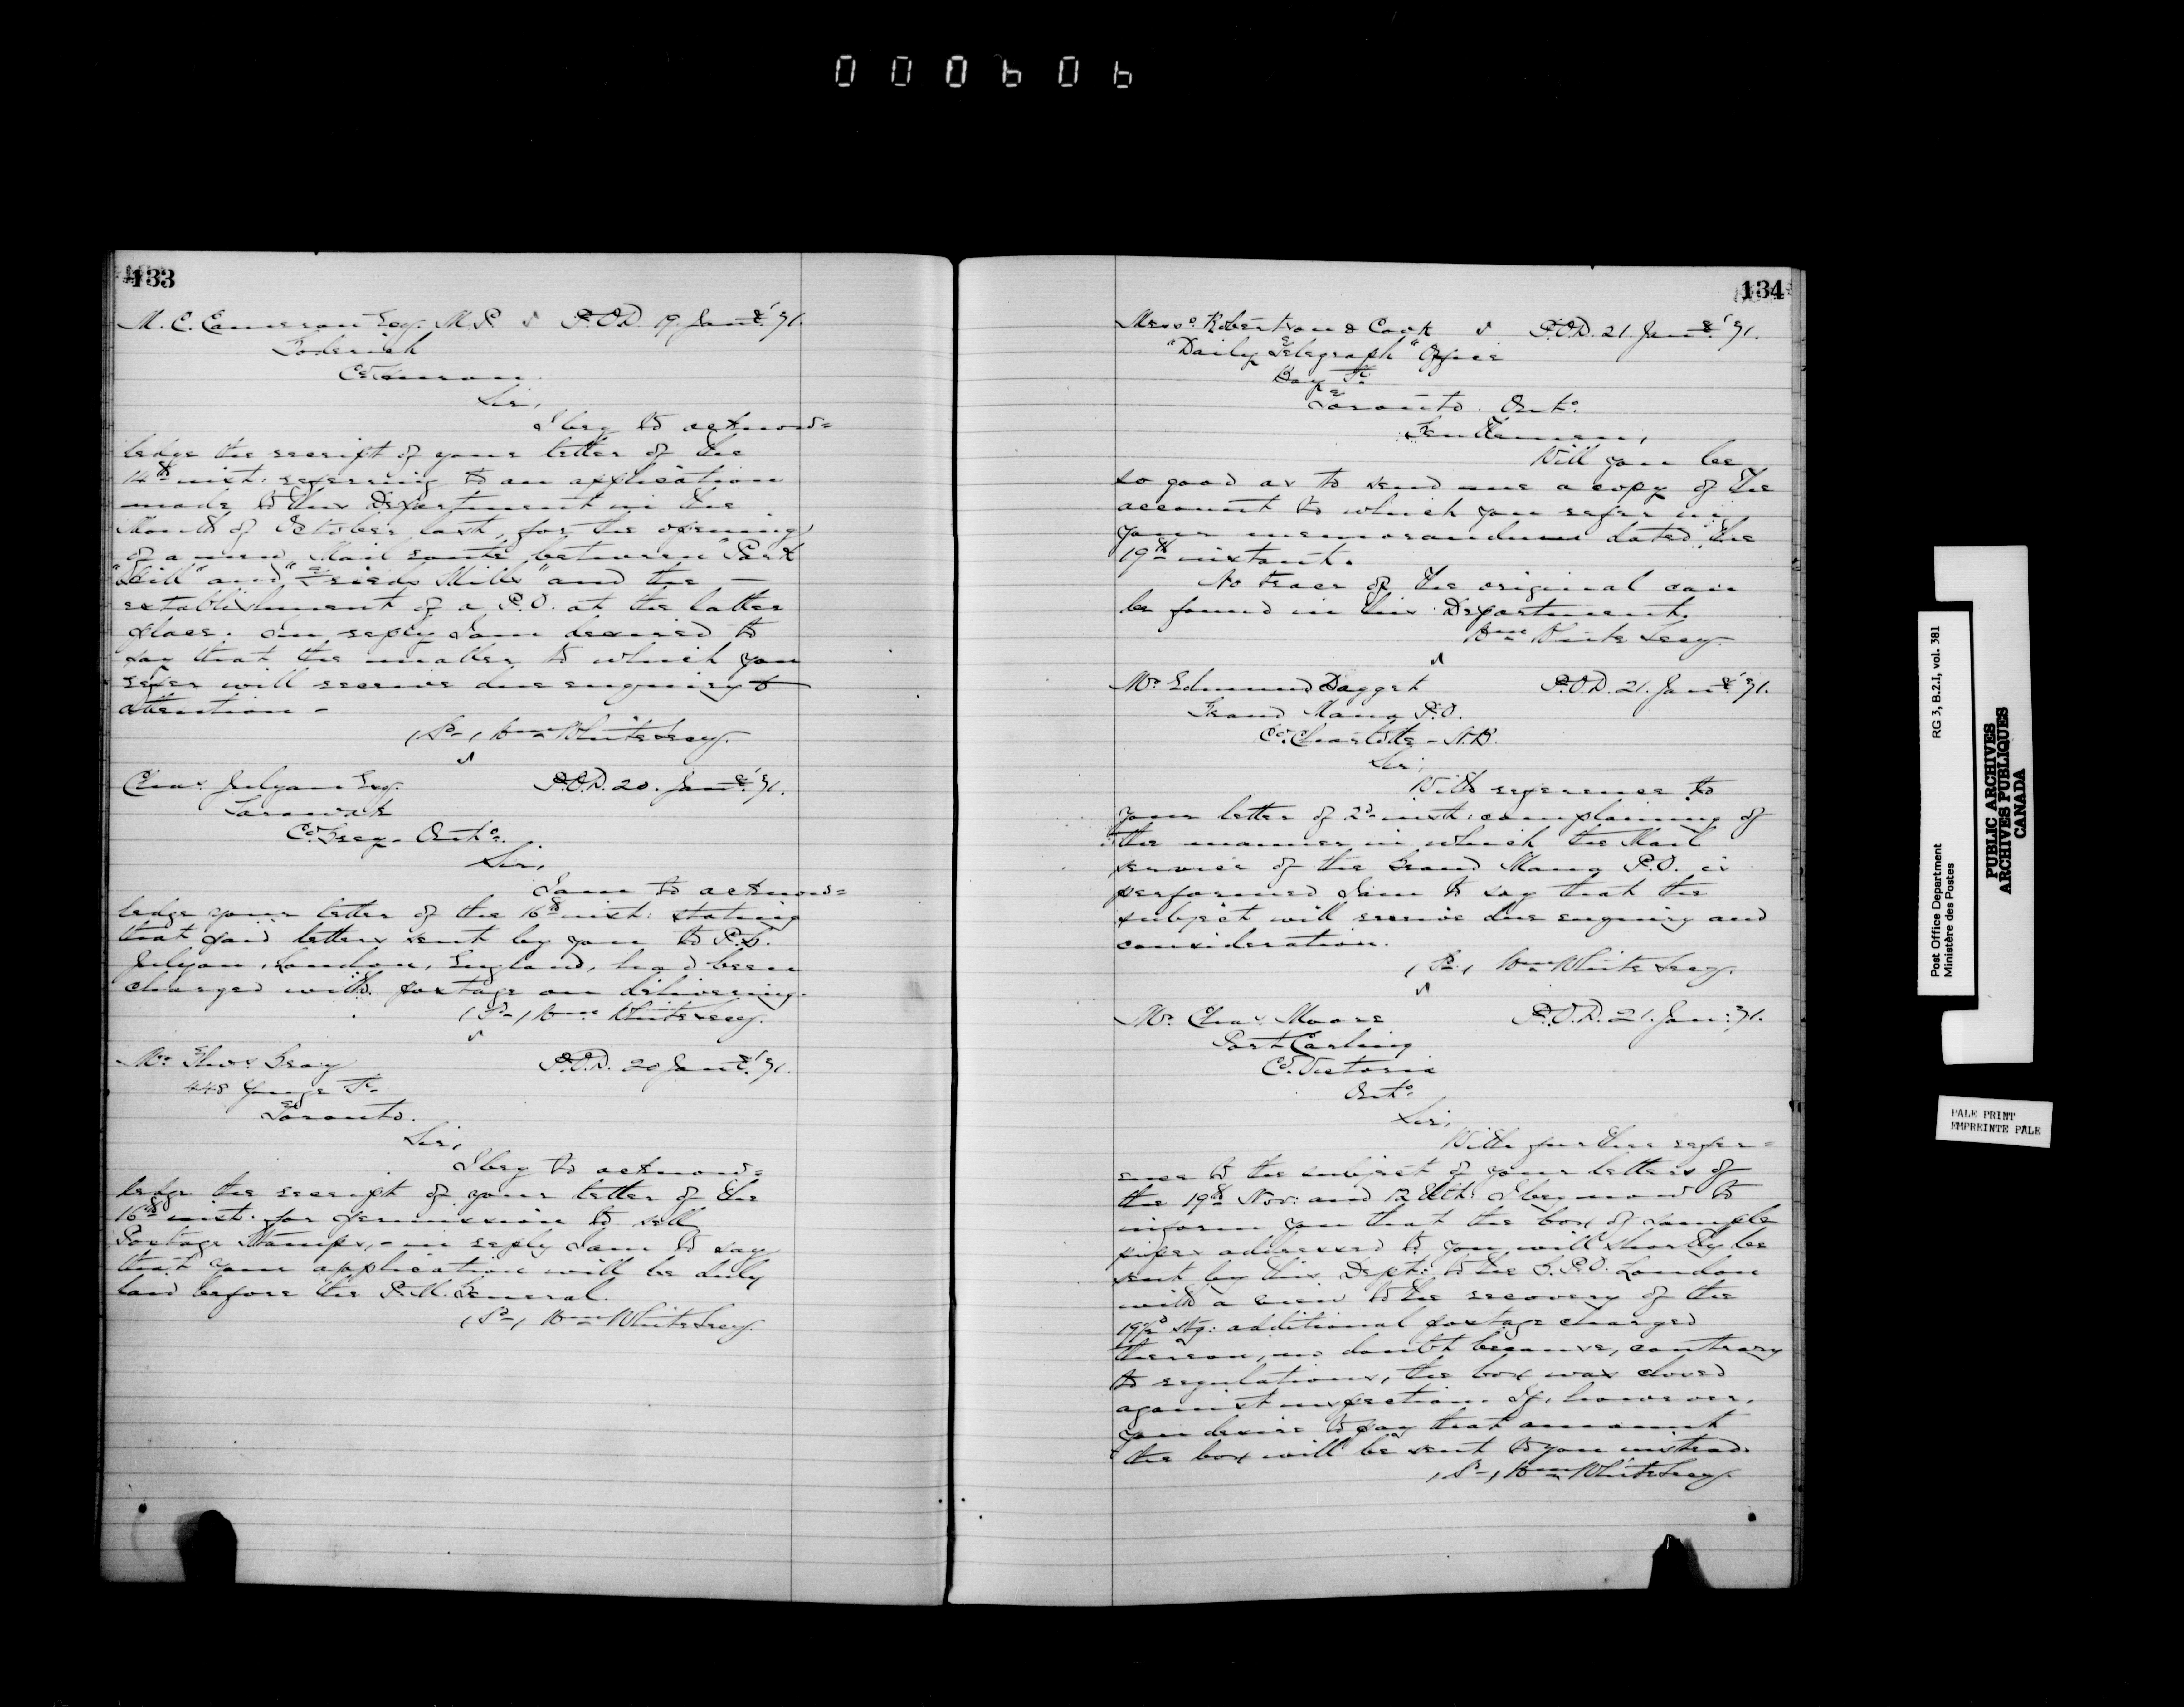 000606
133
M. C. Cameron Esq. M.P. P.O.D. 19. Jany. '71.
Goderich
Co. Huron
Sir,
I beg to acknow=
ledge the receipt of your letter of the
14th inst. referring to an application
made to this Department in the
Month of October last, for the opening
of a new Mail route between "Park
Hill" and " Mills" and the —
establishment of a P.O. at the latter
place. In reply I am desired to
say that the matter to which you
refer will receive due enquiry &
attention -
(Sd.) Wm White Secy.
Chas. Julyan Esq. P.O.D. 20. Jany. '71.
Sarawak
Co. Grey - Onto.
Sir,
I am to acknow=
ledge your letter of the 16th inst: stating
that paid letters sent by you to P.G.
Julyan, London, England, had been
charged with postage on delivering.
(Sd.) Wm White Secy.
Mr. Thos Gray P.O.D. 20 Jany. '71.
448 Yonge St.
Toronto.
Sir,
I beg to acknow=
ledge the receipt of your letter of the
16th inst. for permission to sell
Postage Stamps, - in reply I am to say
that your application will be duly
laid before the P.M. General.
(Sd.) Wm White Secy.
134
Messrs. Robertson & Cook P.O.D. 21. Jany. '71.
"Daily Telegraph" Office
Bay St.
Toronto. Onto.
Gentlemen,
Will you be
so good as to send me a copy of the
account to which you refer in
your memorandum dated the
19th instant.
No trace of the original can
be found in this Department.
Wm White Secy.
Mr. Edmund Dagget P.O.D. 21. Jany. '71.
Grand Manan P.O.
Co. Charlotte - N.B.
Sir,
With reference to
your letter of 2d inst: complaining of
the manner in which the Mail
service of the Grand Manan P.O. is
performed I am to say that the
subject will receive due enquiry and
consideration.
(Sd.) Wm White Secy.
Mr. Chas. Moore P.O.D. 21. Jan: 71.
Port Carling
Co. Victoria
Onto.
Sir,
With further refer=
ence to the subject of your letters of
the 19th Nov: and 12 Ulto: I beg now to
inform you that the box of sample
pipes addressed to you will shortly be
sent by this Dept: to the G.P.O. London
with a view to the recovery of the
stg: additional postage charged
thereon, no doubt because, contrary
to regulations, the box was closed
against inspection. If, however,
you desire to pay that amount
the box will be sent to you instead.
(Sd.) Wm White Secy.
Post Office Department RG 3, B.2.I, vol. 381
Ministère des Postes
PUBLIC ARCHIVES
ARCHIVES PUBLIQUES
CANADA
PALE PRINT
EMPREINTE PALE